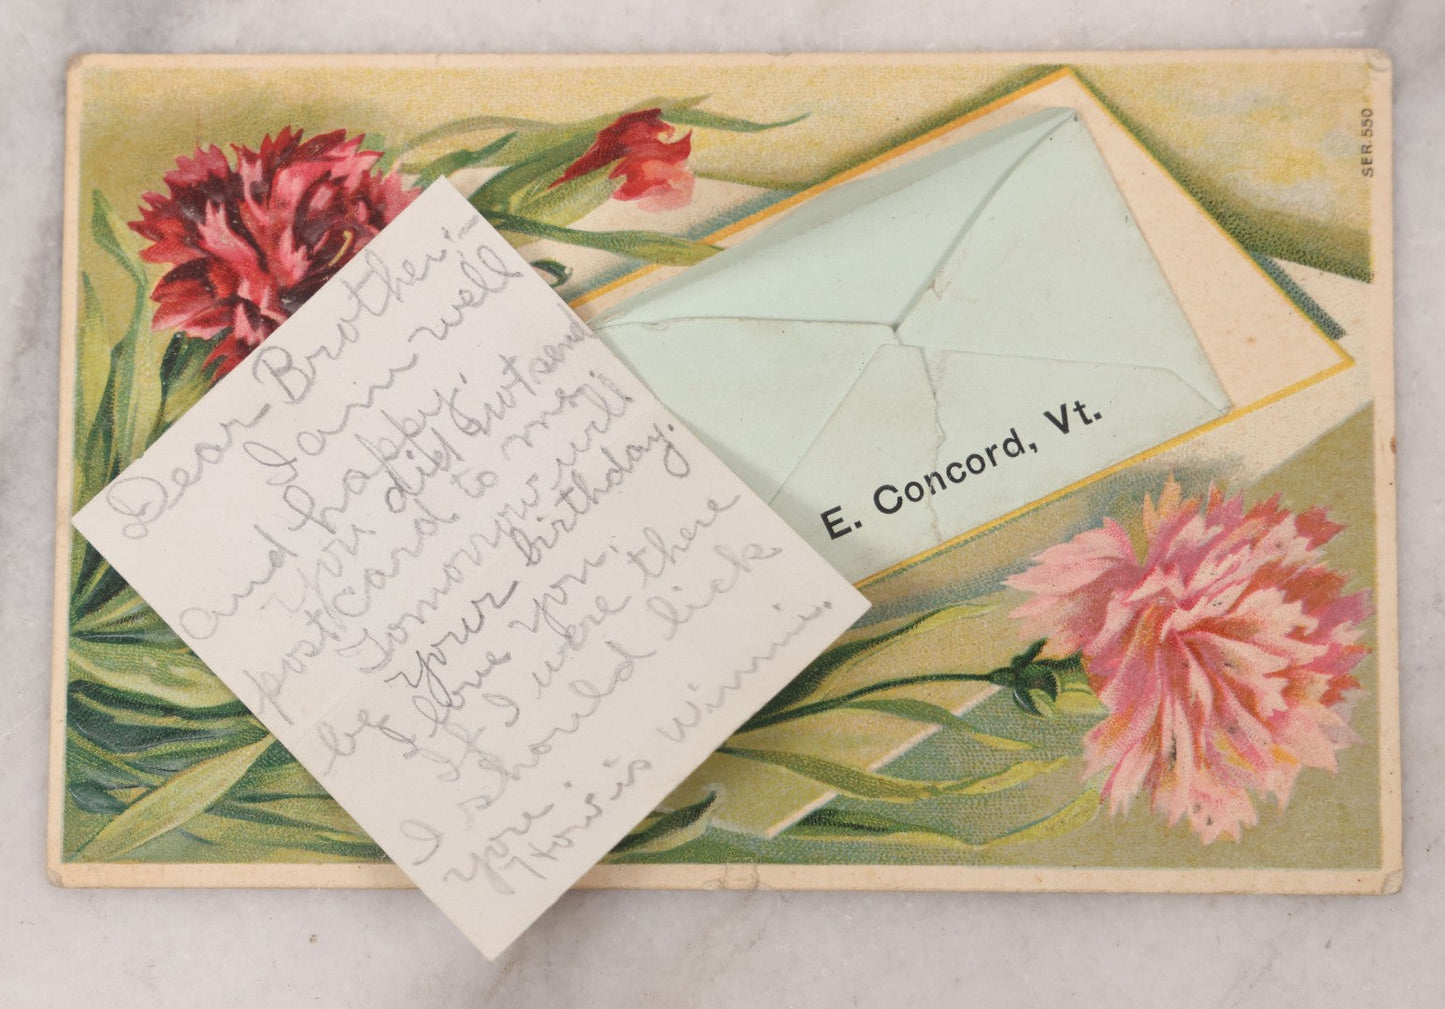 Dear Brother:-
I am well
and happy.
You did not send
post card to me.
Tomorrow will
be your birthday.
I love you.
If I were there
I should lick
you.
How is Winnie.
E. Concord, Vt.
SER. 550